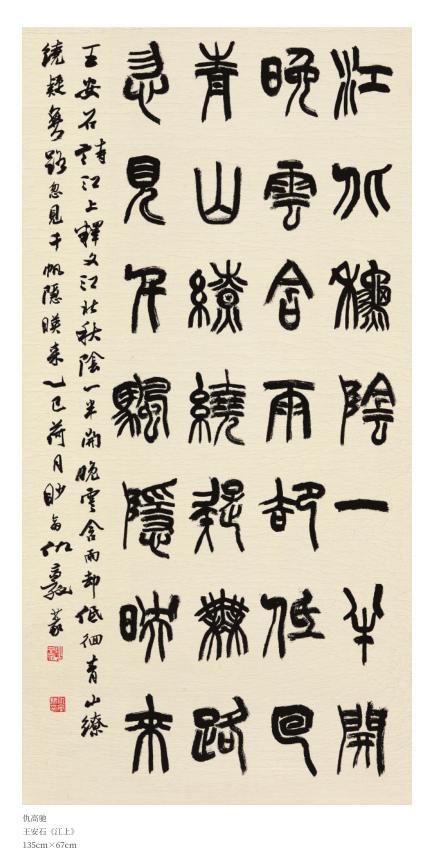 江北穐陰一半開
晚雲含雨却低回
青山繚繞疑無路
忽見千颿隱映来
王安石詩江上釋文江北秋陰一半開晚雲含雨却低徊青山繚
繞疑無路忽見千帆隱映来乙巳荷月眇翁仇篆
仇高驰
王安石《江上》
135cm×67cm